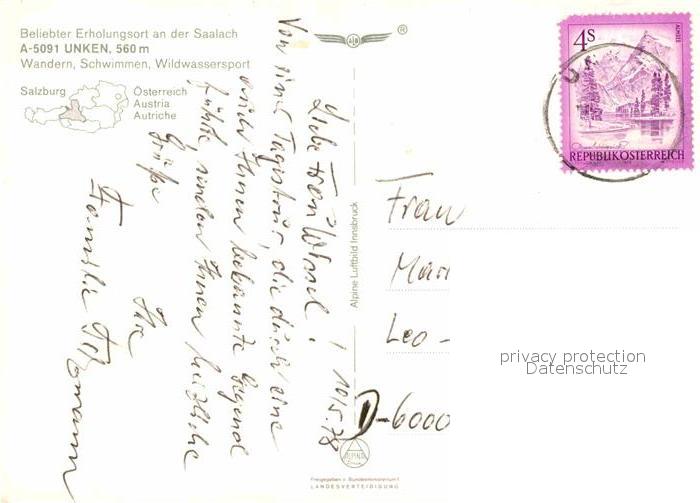 Beliebter Erholungsort an der Saalach
A-5091 UNKEN, 560 m
Wandern, Schwimmen, Wildwassersport
Salzburg
Österreich
Austria
Autriche
®
10.5.78
Liebe Frau
Von einer Tagestour, die durch eine
auch Ihnen bekannte Gegend
führte, senden Ihnen herzliche
Grüße
Ihre
Familie
Alpine Luftbild Innsbruck
ALPINE
Freigegeben v. Bundesministerium f.
LANDESVERTEIDIGUNG
4S
ALMSEE
REPUBLIK ÖSTERREICH
Frau
Mari
Leo-
D-6000
privacy protection
Datenschutz